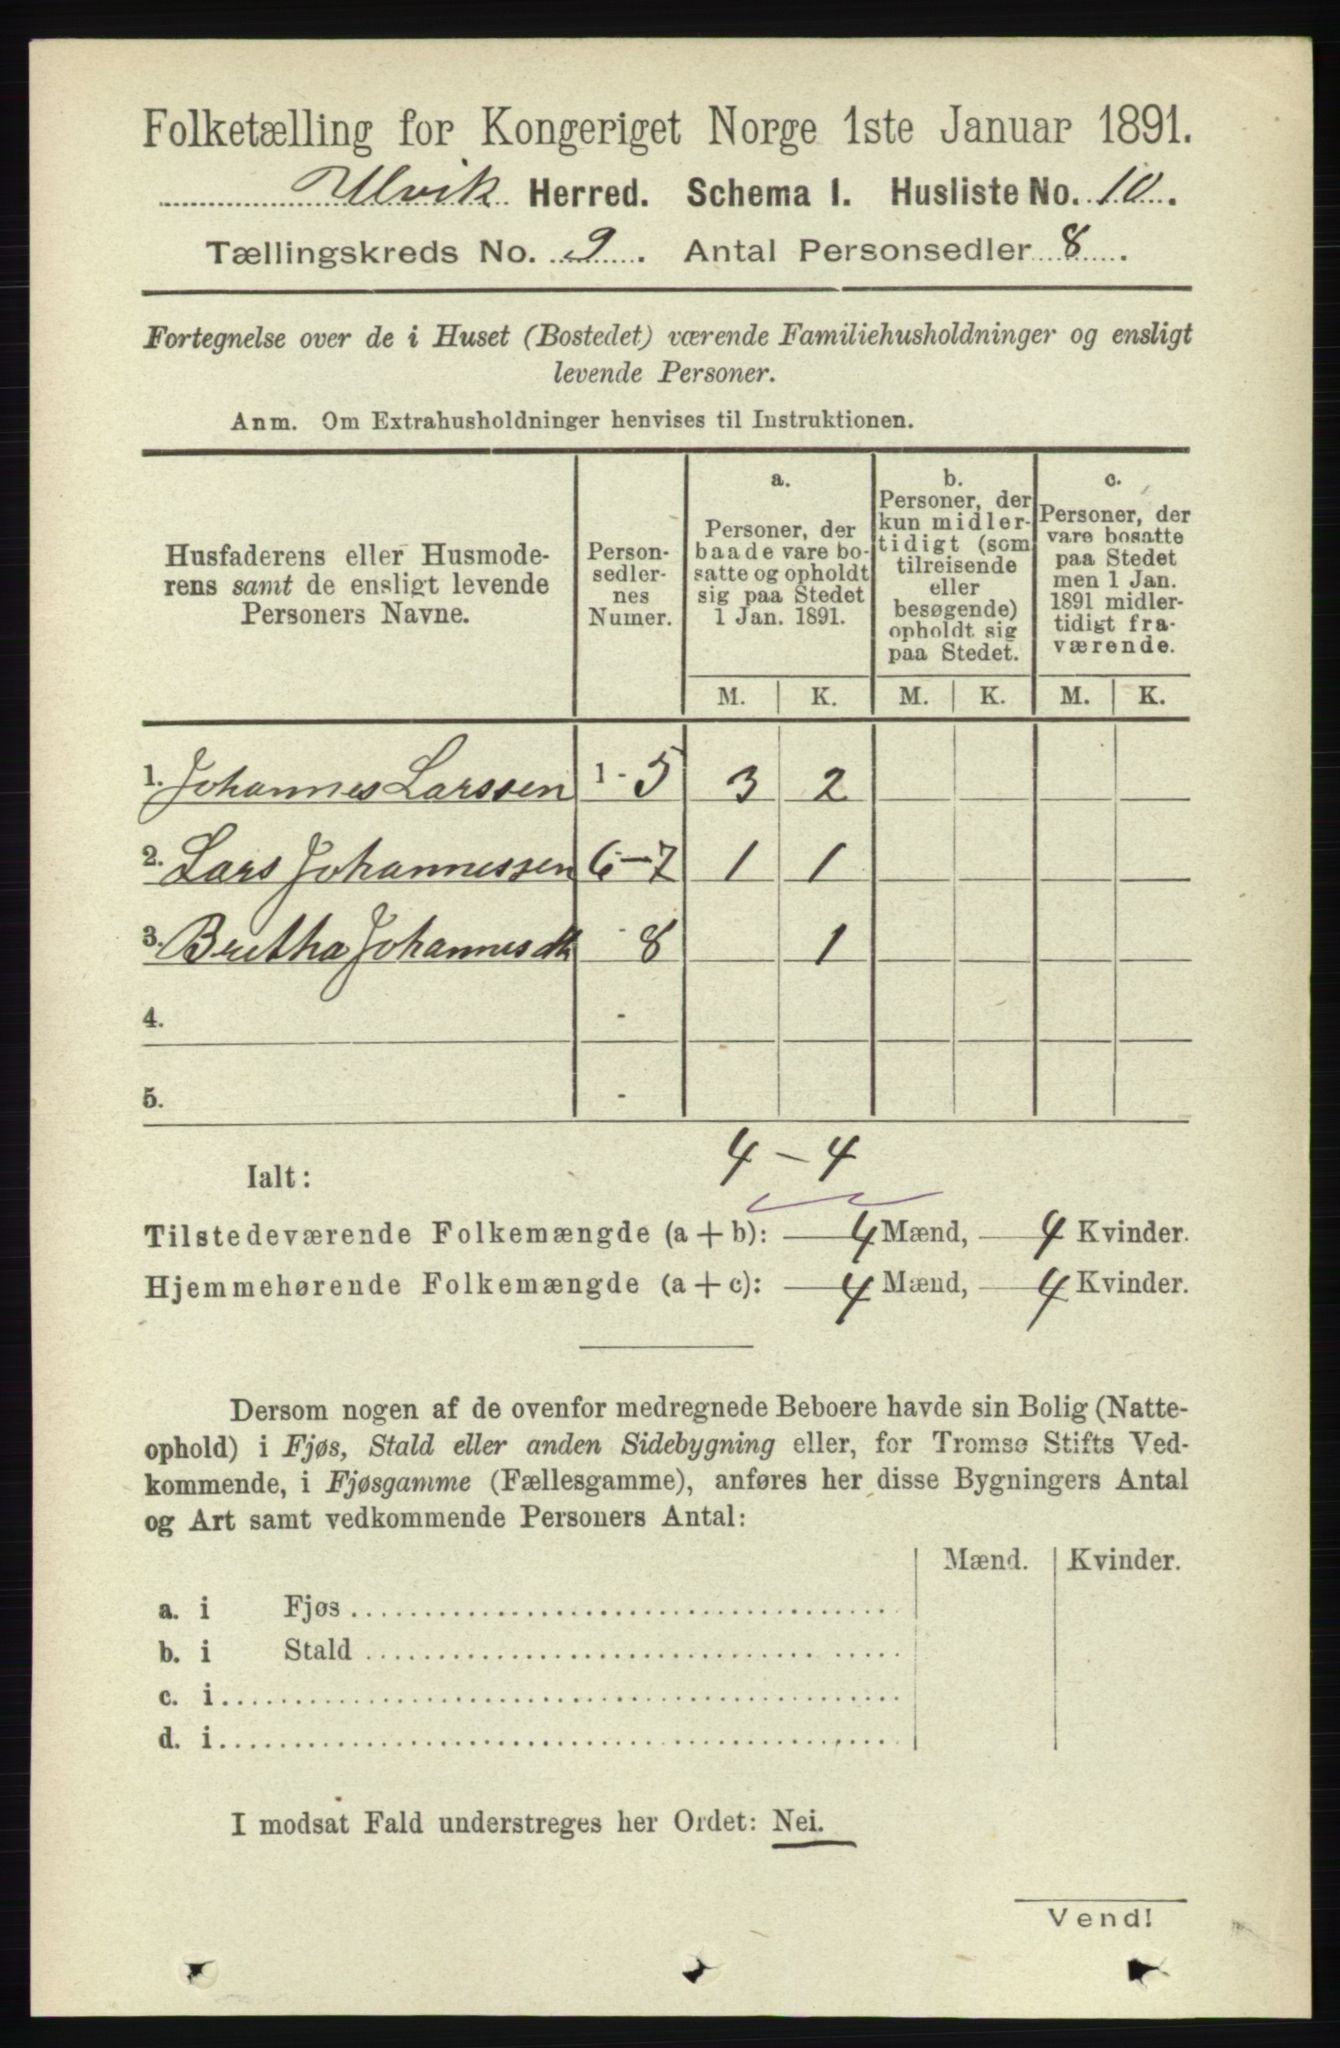 Folketælling for Kongeriget Norge 1ste Januar 1891.
Ulvik Herred. Schema I. Husliste No. 10.
Tællingskreds No. 9. Antal Personsedler 8.
Fortegnelse over de i Huset (Bostedet) værende Familiehusholdninger og ensligt
levende Personer.
Anm. Om Extrahusholdninger henvises til Instruktionen.
Husfaderens eller Husmode-
rens samt de ensligt levende
Personers Navne.
Person-
sedler-
nes
Numer.
a.
Personer, der
baade vare bo-
satte og opholdt
sig paa Stedet
1 Jan. 1891.
b.
Personer, der
kun midler-
tidigt (som
tilreisende
eller
besøgende)
opholdt sig
paa Stedet.
c.
Personer, der
vare bosatte
paa Stedet
men 1 Jan.
1891 midler-
tidigt fra-
værende.
M. K. M. K. M. K.
1. Johannes Larssen 1 - 5 3 2
2. Lars Johannessen 6-7 1 1
3. Bretha Johannesdtr - 8 1
4. -
5. -
Ialt: 4 - 4
Tilstedeværende Folkemængde (a + b): 4 Mænd, 4 Kvinder.
Hjemmehørende Folkemængde (a + c): 4 Mænd, 4 Kvinder.
Dersom nogen af de ovenfor medregnede Beboere havde sin Bolig (Natte-
ophold) i Fjøs, Stald eller anden Sidebygning eller, for Tromsø Stifts Ved-
kommende, i Fjøsgamme (Fællesgamme), anføres her disse Bygningers Antal
og Art samt vedkommende Personers Antal:
Mænd. Kvinder.
a. i Fjøs
b. i Stald
c. i
d. i
I modsat Fald understreges her Ordet: Nei.
Vend!